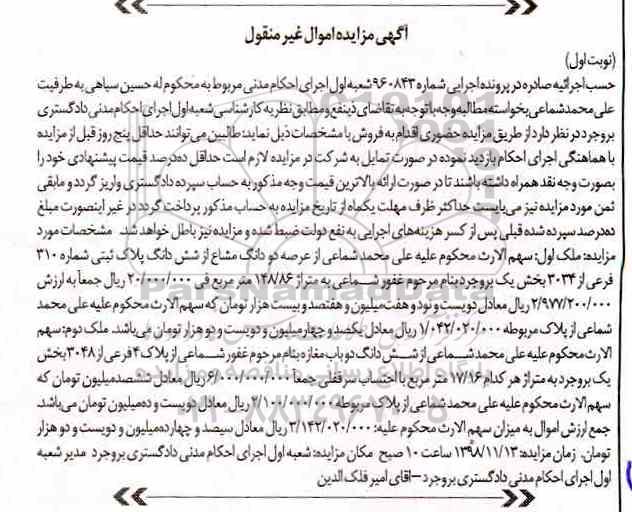 آگهی مزایده اموال غیر منقول
(نوبت اول)
حسب اجرائیه صادره در پرونده اجرایی شماره ۹۶۰۸۴۳ شعبه اول اجرای احکام مدنی مربوط به محکوم له حسین سپاهی به طرفیت
علی محمد شماعی بخواسته مطالبه وجه با توجه به تقاضای ذینفع و مطابق نظریه کارشناسی شعبه اول اجرای احکام مدنی دادگستری
بروجرد در نظر دارد از طریق مزایده حضوری اقدام به فروش با مشخصات ذیل نماید: طالبین می‌توانند حداقل پنج روز قبل از مزایده
با هماهنگی اجرای احکام بازدید نموده در صورت تمایل به شرکت در مزایده لازم است حداقل ده‌درصد قیمت پیشنهادی خود را
بصورت وجه نقد همراه داشته باشند تا در صورت ارائه بالاترین قیمت وجه مذکور به حساب سپرده دادگستری واریز گردد و مابقی
ثمن مورد مزایده نیز می‌بایست حداکثر ظرف مهلت یکماه از تاریخ مزایده به حساب مذکور پرداخت گردد در غیر اینصورت مبلغ
ده‌درصد سپرده شده قبلی پس از کسر هزینه‌های اجرایی به نفع دولت ضبط شده و مزایده نیز باطل خواهد شد. مشخصات مورد
مزایده: ملک اول: سهم الارث محکوم علیه علی محمد شماعی از عرصه دو دانگ مشاع از شش دانگ پلاک ثبتی شماره ۳۱۰
فرعی از ۳۰۳۴ بخش یک بروجرد بنام مرحوم غفور شماعی به متراژ ۱۴۸/۸۶ متر مربع فی ۲۰/۰۰۰/۰۰۰ ریال جمعاً به ارزش
۲/۹۷۷/۲۰۰/۰۰۰ ریال معادل دویست و نود و هفت میلیون و هفتصد و بیست هزار تومان که سهم الارث محکوم علیه علی محمد
شماعی از پلاک مربوطه ۱/۰۴۲/۰۲۰/۰۰۰ ریال معادل یکصد و چهار میلیون و دویست و دو هزار تومان می‌باشد. ملک دوم: سهم
الارث محکوم علیه علی محمد شماعی از شش دانگ دو باب مغازه بنام مرحوم غفور شماعی از پلاک ۴ فرعی از ۳۰۴۸ بخش
یک بروجرد به متراژ هر کدام ۱۷/۱۶ متر مربع با احتساب سرقفلی جمعا ۶/۰۰۰/۰۰۰/۰۰۰ ریال معادل ششصد میلیون تومان که
سهم الارث محکوم علیه علی محمد شماعی از پلاک مربوطه ۲/۱۰۰/۰۰۰/۰۰۰ ریال معادل دویست و ده میلیون تومان می‌باشد.
جمع ارزش اموال به میزان سهم الارث محکوم علیه: ۳/۱۴۲/۰۲۰/۰۰۰ ریال معادل سیصد و چهارده میلیون و دویست و دو هزار
تومان. زمان مزایده: ۱۳۹۸/۱۱/۱۳ ساعت ۱۰ صبح مکان مزایده: شعبه اول اجرای احکام مدنی دادگستری بروجرد مدیر شعبه
اول اجرای احکام مدنی دادگستری بروجرد – اقای امیر فلک الدین